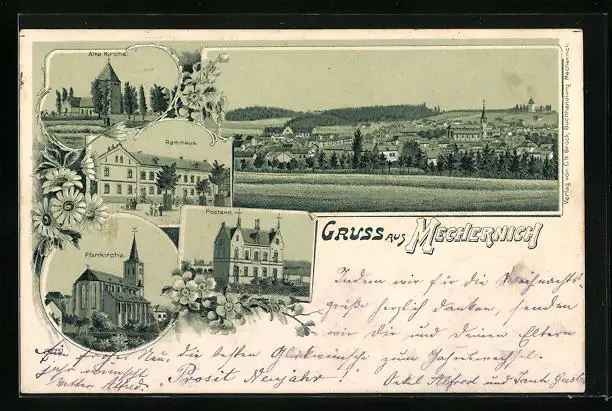 Alte Kirche.
Rathhaus.
Postamt.
Pfarrkirche.
Verlag von C.H. Bruch, Buchhandlung Mechernich.
GRUSS AUS MECHERNICH
Indem wir für die Weihnachts-
grüße herzlich danken, senden
wir dir und deinen Eltern
die besten Glückwünsche zum Jahreswechsel.
Ein frohes Neu-
jahr wünscht
Vetter Alfred.
"Prosit Neujahr!"
Onkel Alfred und Tante Gust